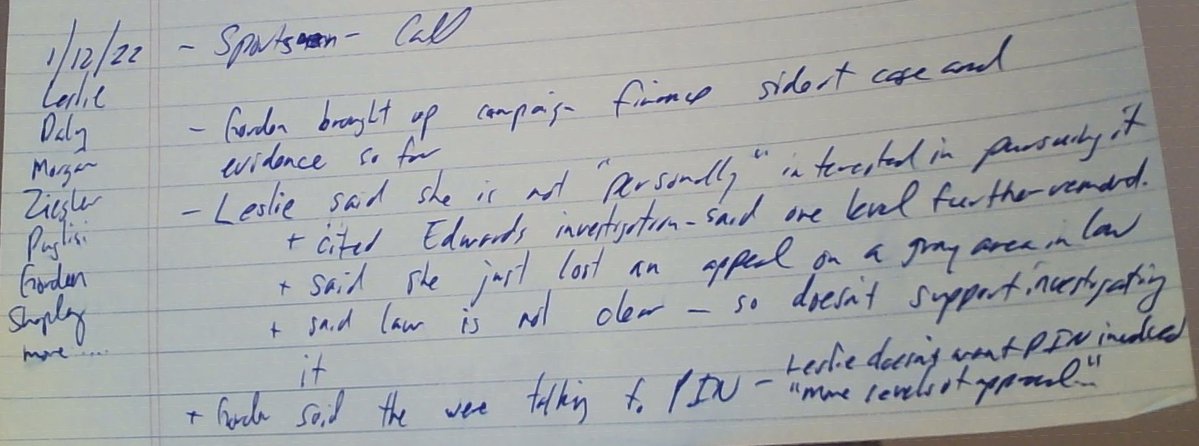 1/12/22 - Sportsman - Call
Leslie
Daly - Gordon brought up campaign finance side of case and
Morgan evidence so far
Ziegler - Leslie said she is not "personally" interested in pursuing it
Puglisi + cited Edwards investigation - said one level further removed.
Gordon + said she just lost an appeal on a gray area in law
Shapley + said law is not clear - so doesn't support investigating
more .... it
+ Gordon said the were talking to PIN - Leslie doesn't want PIN involved
"more levels of approval.."